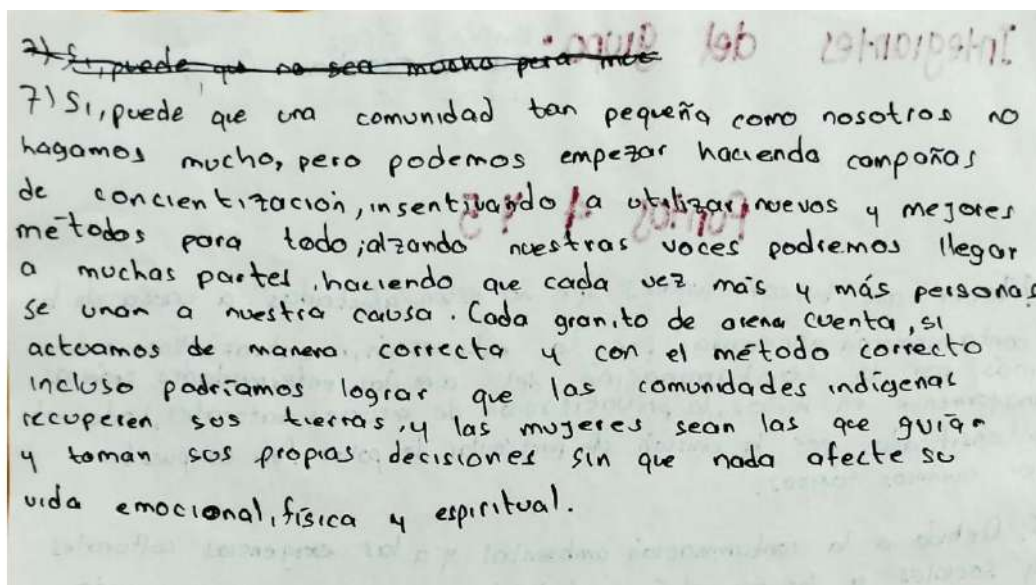 7) Si, puede que no sea mucho pero
7) Si, puede que una comunidad tan pequeña como nosotros no
hagamos mucho, pero podemos empezar haciendo campañas
de concientización, insentivando a utilizar nuevos y mejores
métodos para todo; alzando nuestras voces podremos llegar
a muchas partes, haciendo que cada vez más y más personas
se unan a nuestra causa. Cada granito de arena cuenta, si
actuamos de manera correcta y con el método correcto
incluso podríamos lograr que las comunidades indígenas
recuperen sus tierras, y las mujeres sean las que guían
y toman sus propias decisiones sin que nada afecte su
vida emocional, física y espiritual.